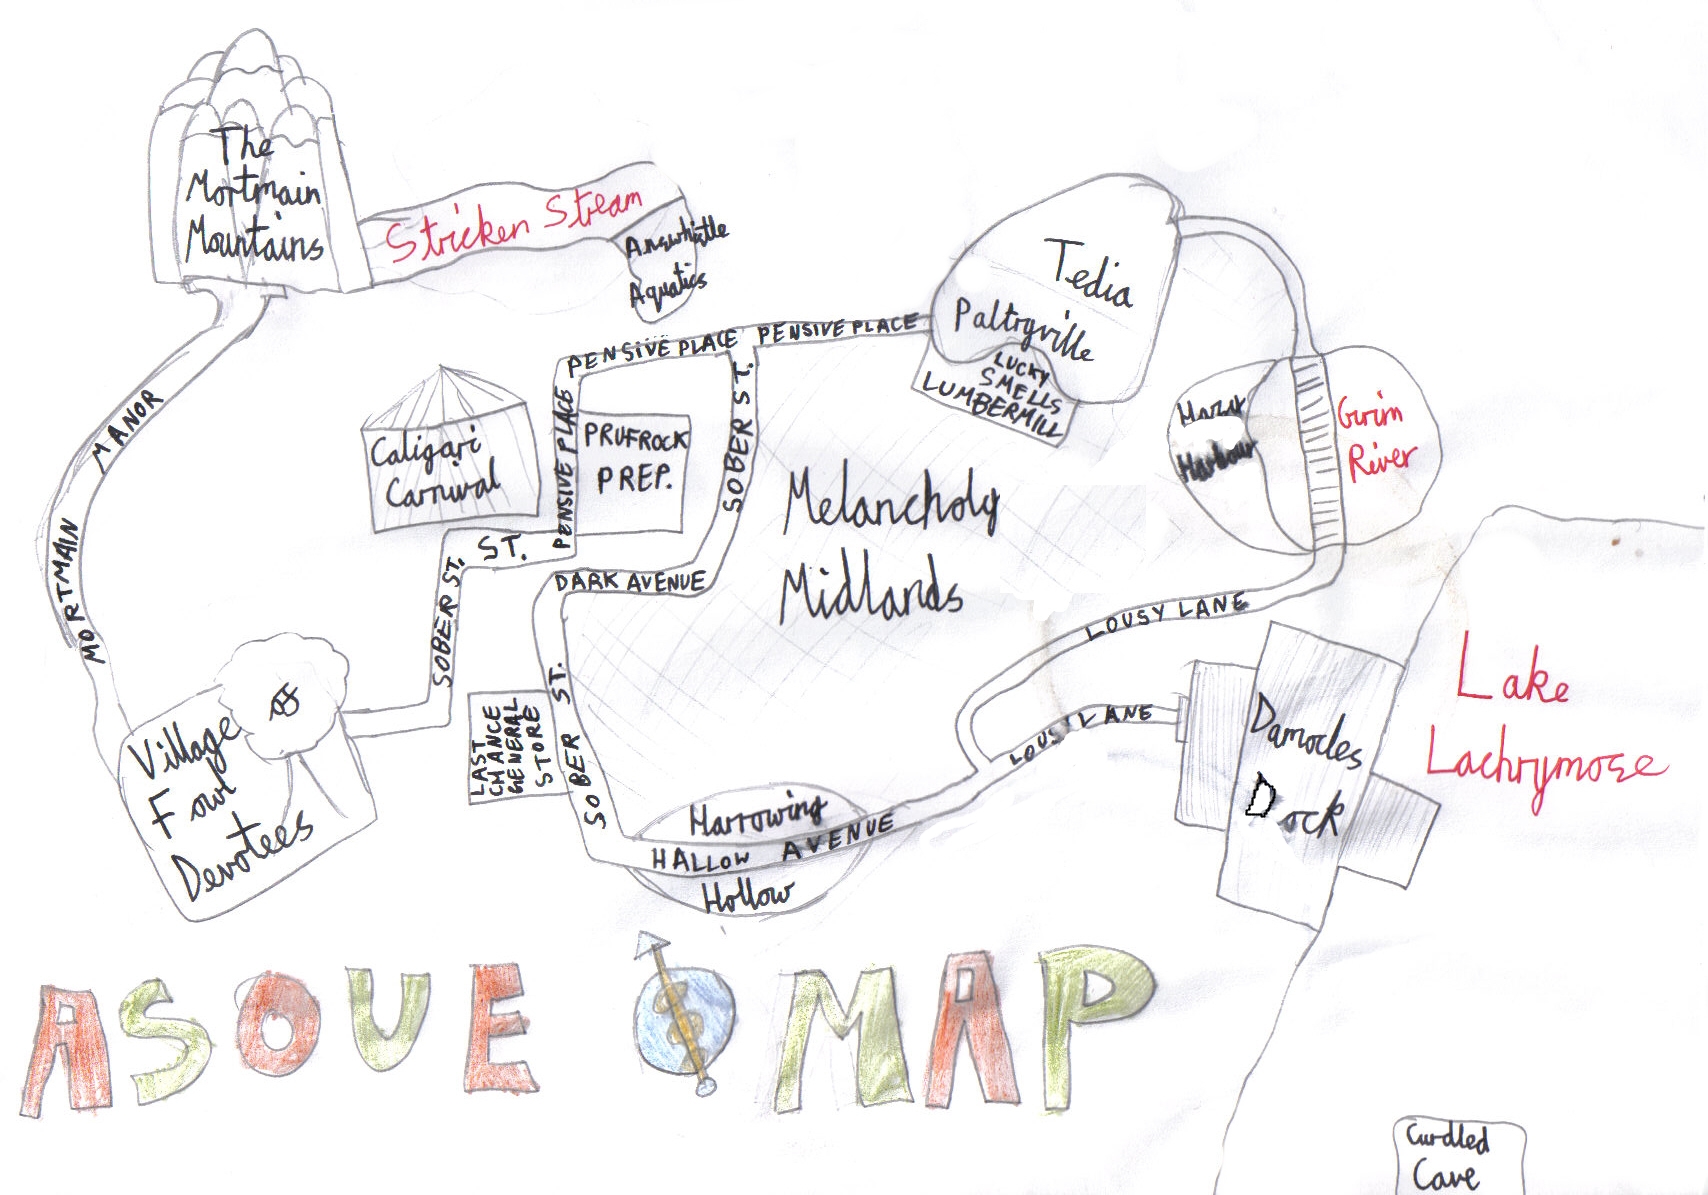 The
Mortmain
Mountains
Stricken Stream
Anwhistle
Aquatics
MORTMAIN MANOR
Caligari
Carnival
PENSIVE PLACE
PENSIVE PLACE
PENSIVE PLACE
PRUFROCK
PREP.
SOBER ST.
SOBER ST.
ST.
DARK AVENUE
Tedia
Paltryville
LUCKY
SMELLS
LUMBERMILL
Melancholy
Midlands
Harbour
Grim
River
LOUSY LANE
LOUSY LANE
Lake
Lachrymose
Damocles
Dock
Village
Fowl
Devotees
of
LAST
CHANCE
GENERAL
STORE
SOBER ST.
Harrowing
HALLOW AVENUE
Hollow
ASOUE MAP
Curdled
Cave